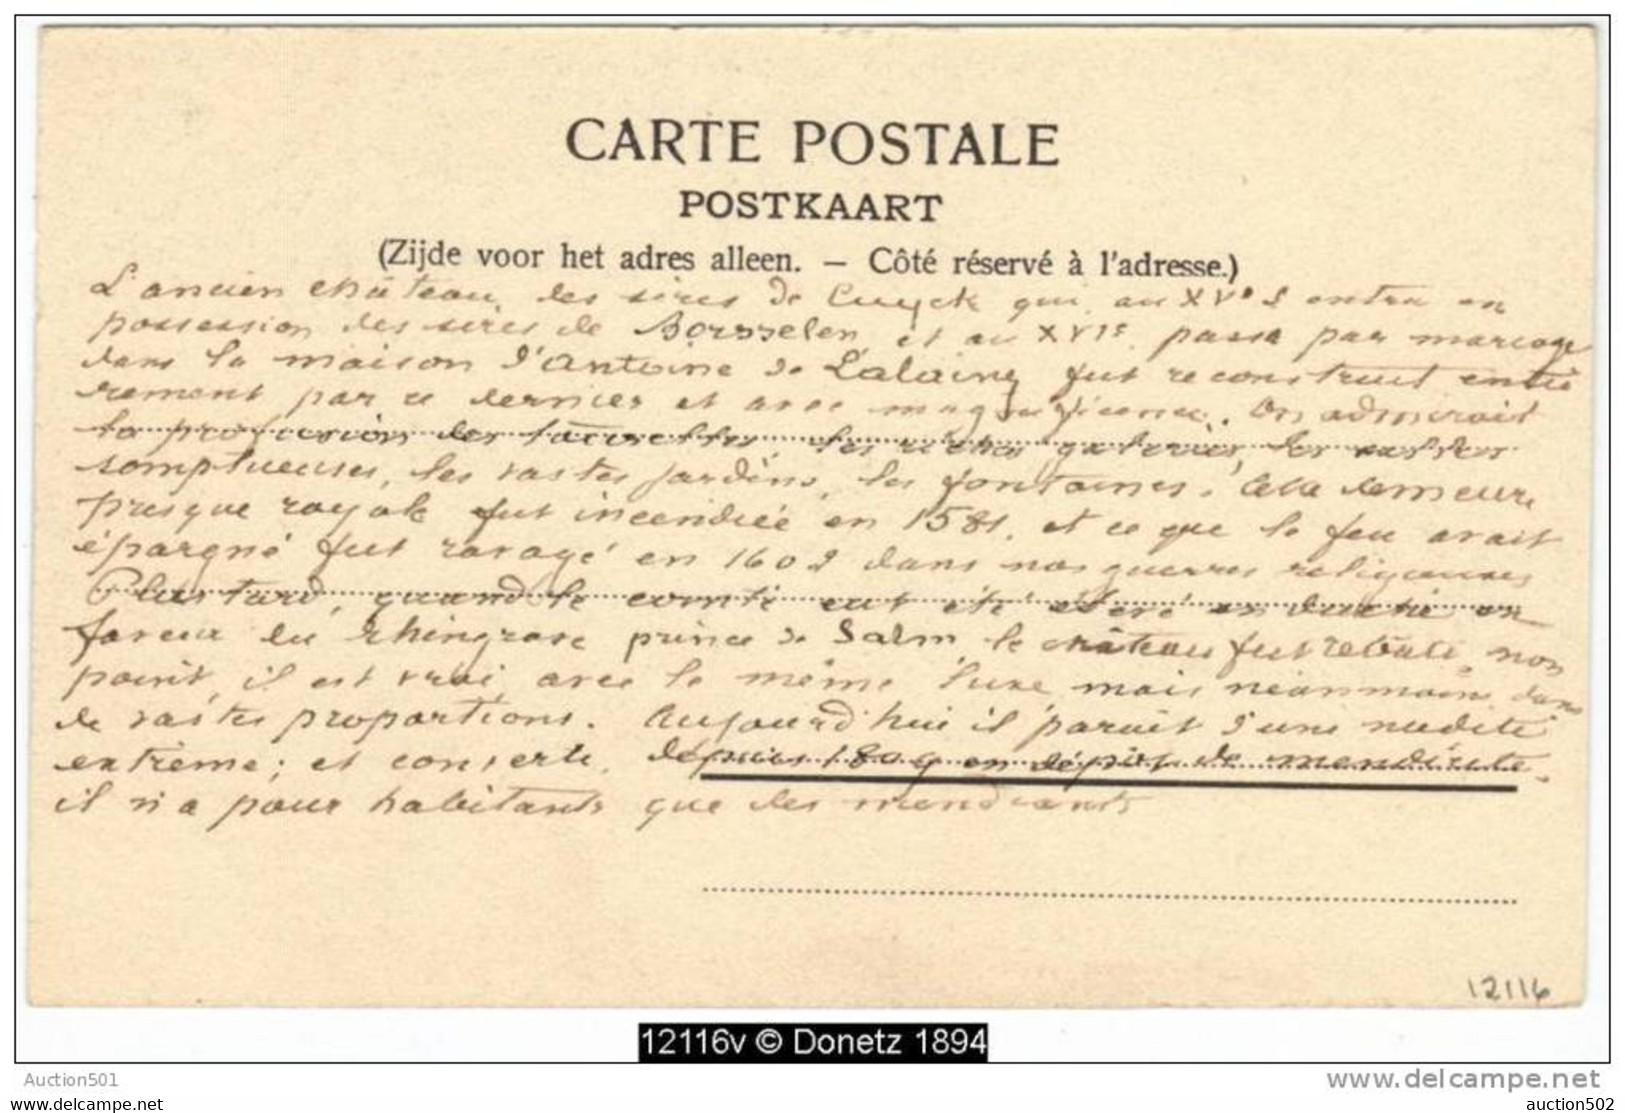 CARTE POSTALE
POSTKAART
(Zijde voor het adres alleen. – Côté réservé à l'adresse.)
L'ancien château des sires de Cuyck qui au XVe s entra en
possession des sires de Borsselen et au XVIe passa par mariage
dans la maison d'Antoine de Lalaing fut reconstruit entiè
rement par ce dernier et avec magnificence. On admirait
la profusion des tourelles, les riches galeries, les salles
somptueuses, les vastes jardins, les fontaines. Cette demeure
presque royale fut incendiée en 1581, et ce que le feu avait
épargné fut ravagé en 1602 dans nos guerres religieuses
Plus tard, quand le comté eut été élevé en duché en
faveur du rhingrave prince de Salm le château fut rebâti, non
point, il est vrai avec le même luxe mais néanmoins dans
de vastes proportions. Aujourd'hui il paraît d'une nudité
extrême; et converti, depuis 1809 en dépôt de mendicité.
il n'a pour habitants que des mendiants
12116
12116v © Donetz 1894
Auction501
www.delcampe.net
les-cartes-postales.com
auction502